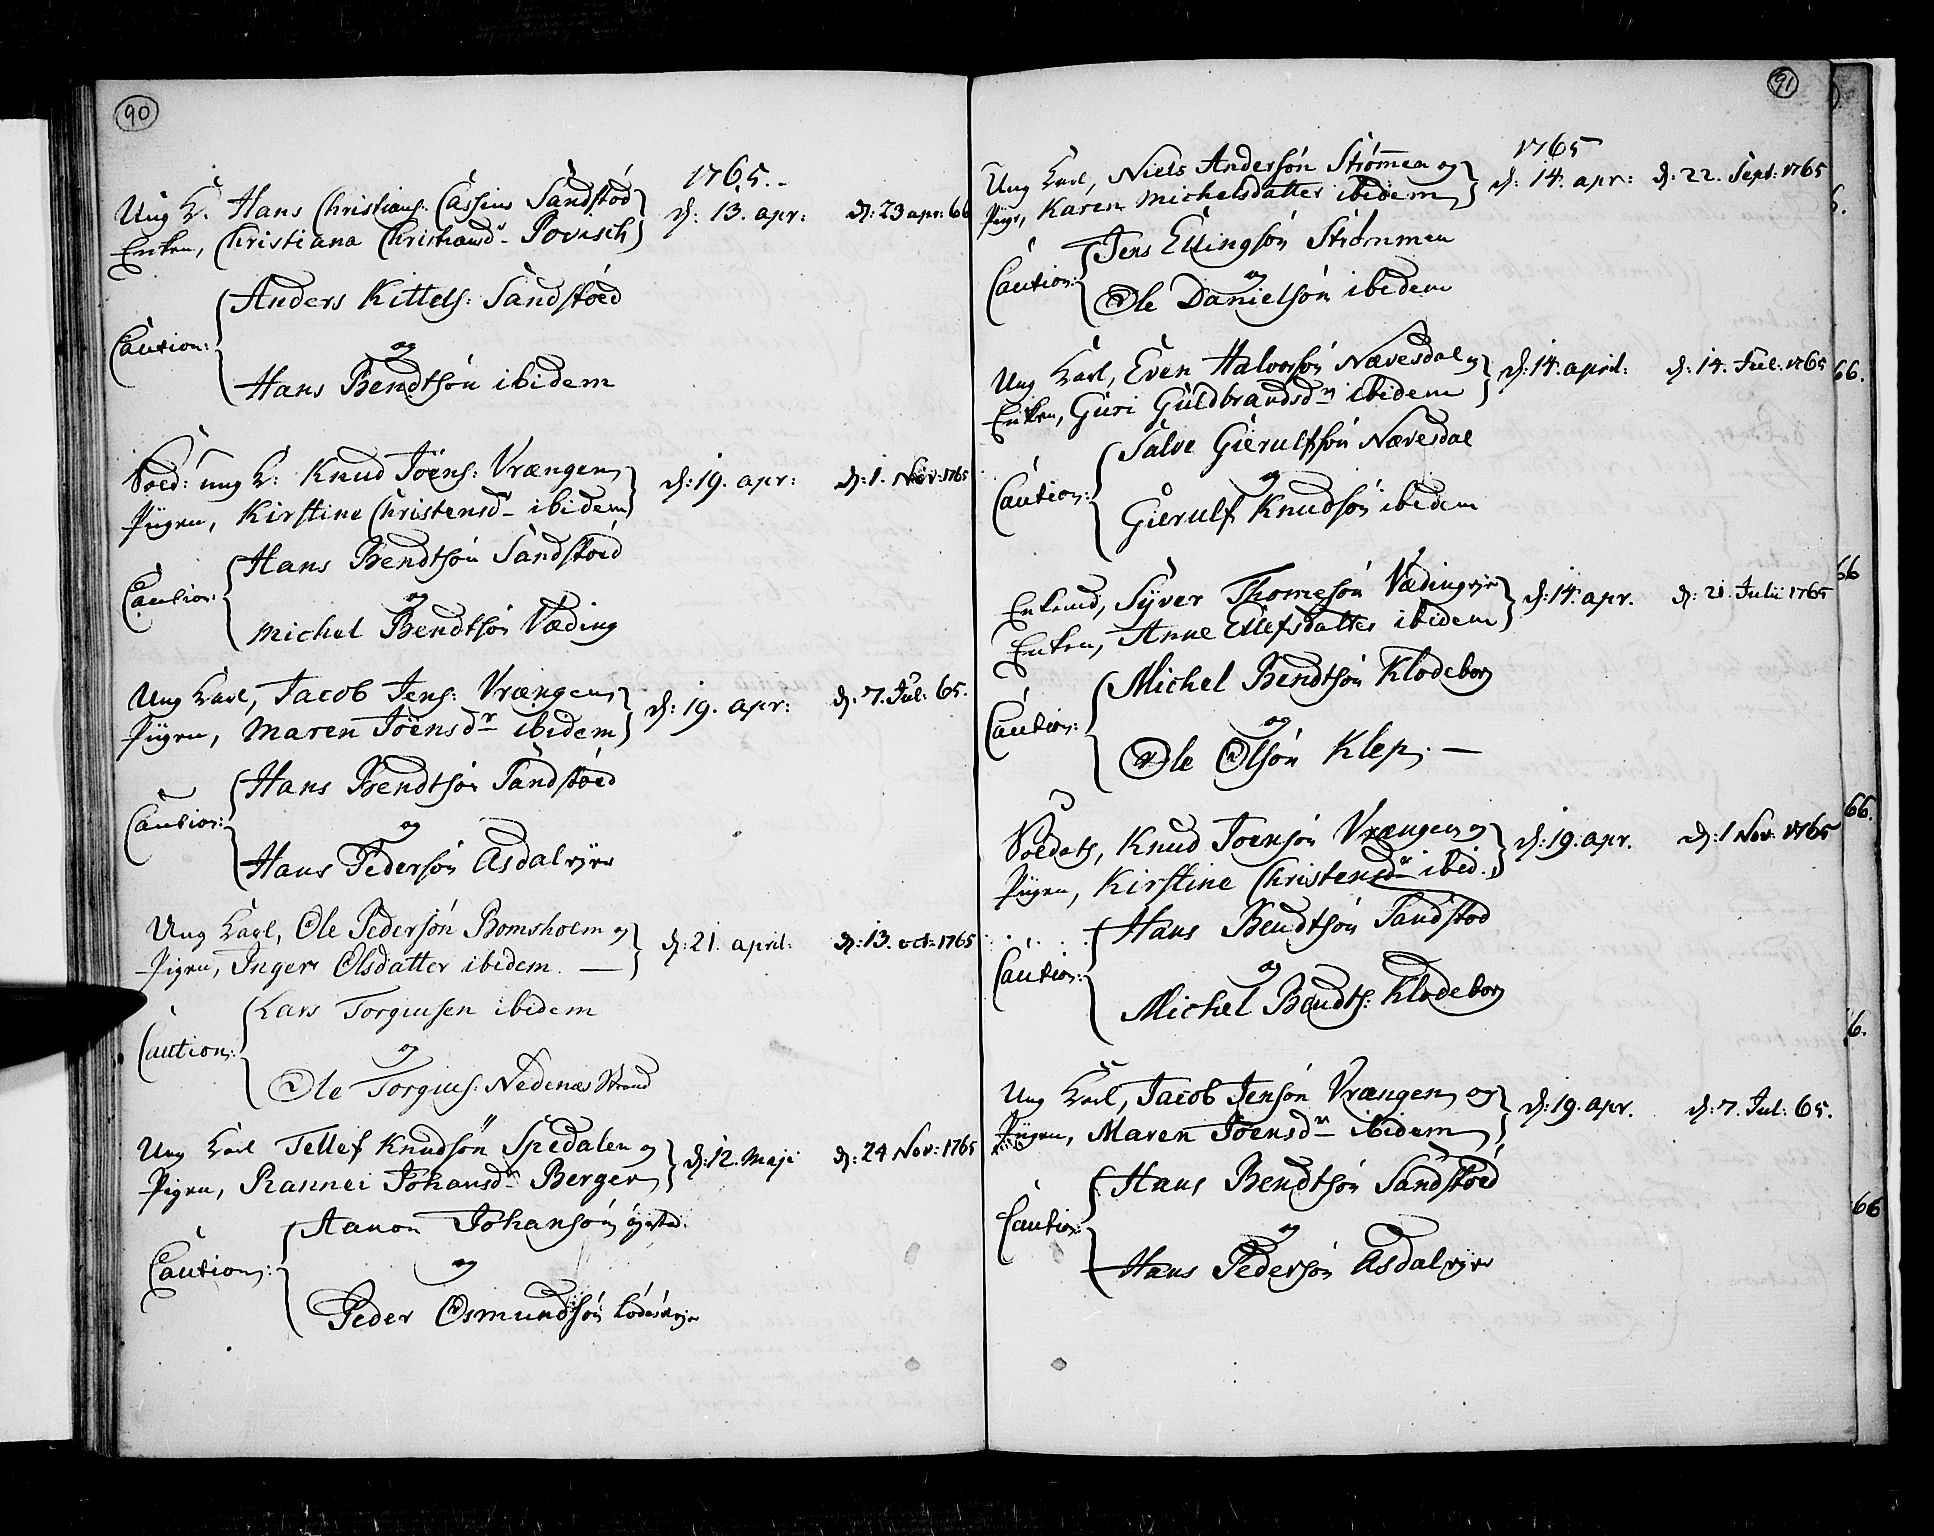 90
1765.-
Ung K. Hans Christians: Cassius Sandstöd
Enken, Christiana Christiansdr Povisch
d: 13. apr: d: 23 apr: 66
Anders Kittels: Sandstöed
Caution: og
Hans Bendtsön ibidem
Soed: ung K: Knud Jöens: Vrængen
Pigen, Kirstine Christensdr ibidem
d: 19. apr: d: 1. Nov: 1765
Hans Bendtsön Sandstöed
Caution: og
Michel Bendtsön Væding
Ung Karl, Jacob Jens: Vrængen
Pigen, Maren Jöensdr ibidem
d: 19. apr: d: 7. Jul: 65.
Hans Bendtsön Sandstöed
Caution: og
Hans Pedersön Asdal
Ung Karl, Ole Pedersön Bomsholm og
Pigen, Inger Olsdatter ibidem. —
d: 21. april: d: 13. oct: 1765
Lars Torgiusen ibidem
Caution: og
Ole Torgius: Nedenæs Strand
Ung Karl Tellef Knudsön Spedalen og
Pigen, Rannei Johansdr Bergen
d: 12. Maji d: 24 Nov: 1765
Aanon Johansön
Caution: og
Peder Osmundsön
91
1765
Ung Karl, Niels Andersön Strömmen og
Pige, Karen Michelsdatter ibidem
d: 14. apr: d: 22. Sept: 1765
Jens Ellingsön Strömmen
Caution: og
Ole Danielsön ibidem
Ung Karl, Even Halvorsön Nævesdal og
Enken, Guri Guldbrandsdr ibidem
d: 14. april: d: 14. Jul: 1765
Salve Gierulfsön Nævesdal
Caution: og
Gierulf Knudsön ibidem
Enkemd, Syver Thomesön
Enken, Anne Ellefsdatter ibidem
d: 14. apr. d: 21. Julii 1765
Michel Bendtsön Klodeborg
Caution: og
Ole Olsön Klep. —
Soldats, Knud Joensön Vrængen og
Pigen, Kirstine Christensdr ibid.
d: 19. apr. d: 1 Nov: 1765
Hans Bendtsön Sandstöd
Caution: og
Michel Bendts: Klodeborg
Ung Karl, Jacob Jensön Vrængen og
Pigen, Maren Joensdr ibidem
d: 19. apr. d: 7. Jul: 65.
Hans Bendtsön Sandstöed
Caution: og
Hans Pedersön Asdal
6.
66.
66
66.
6.
66